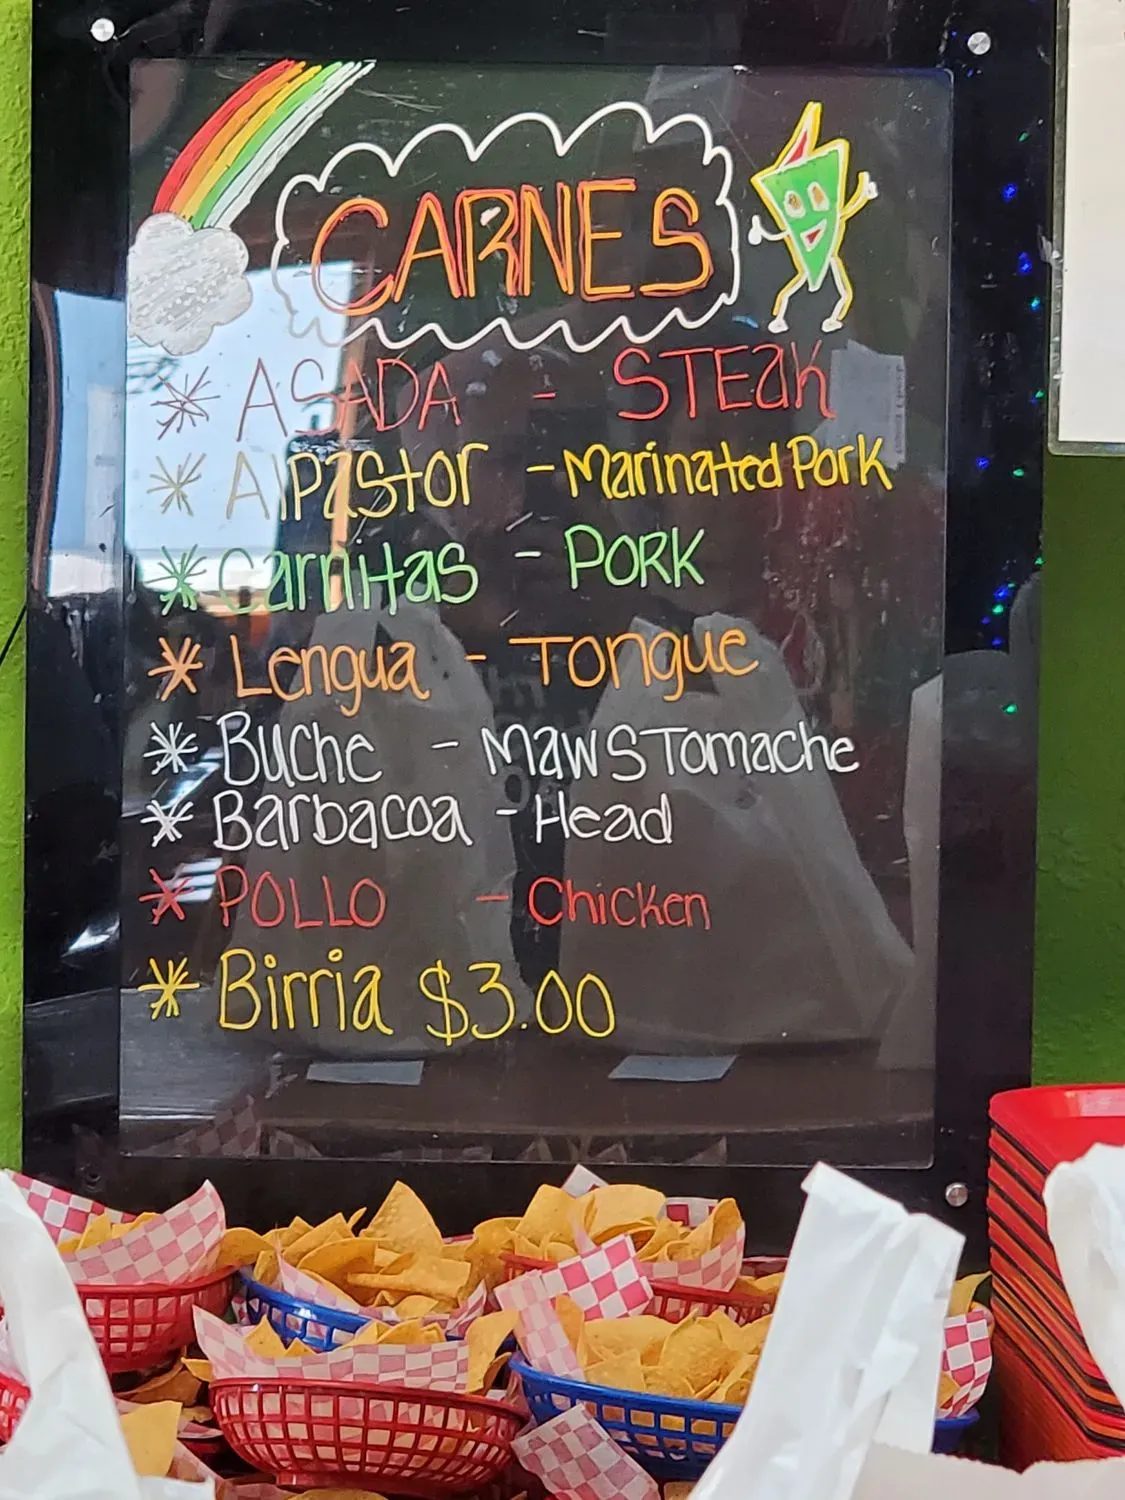 CARNES
* ASADA - STEAK
* AlPastor - Marinated Pork
* Carnitas - PORK
* Lengua - Tongue
* Buche - Maw STomache
* Barbacoa - Head
* POLLO - Chicken
* Birria $3.00